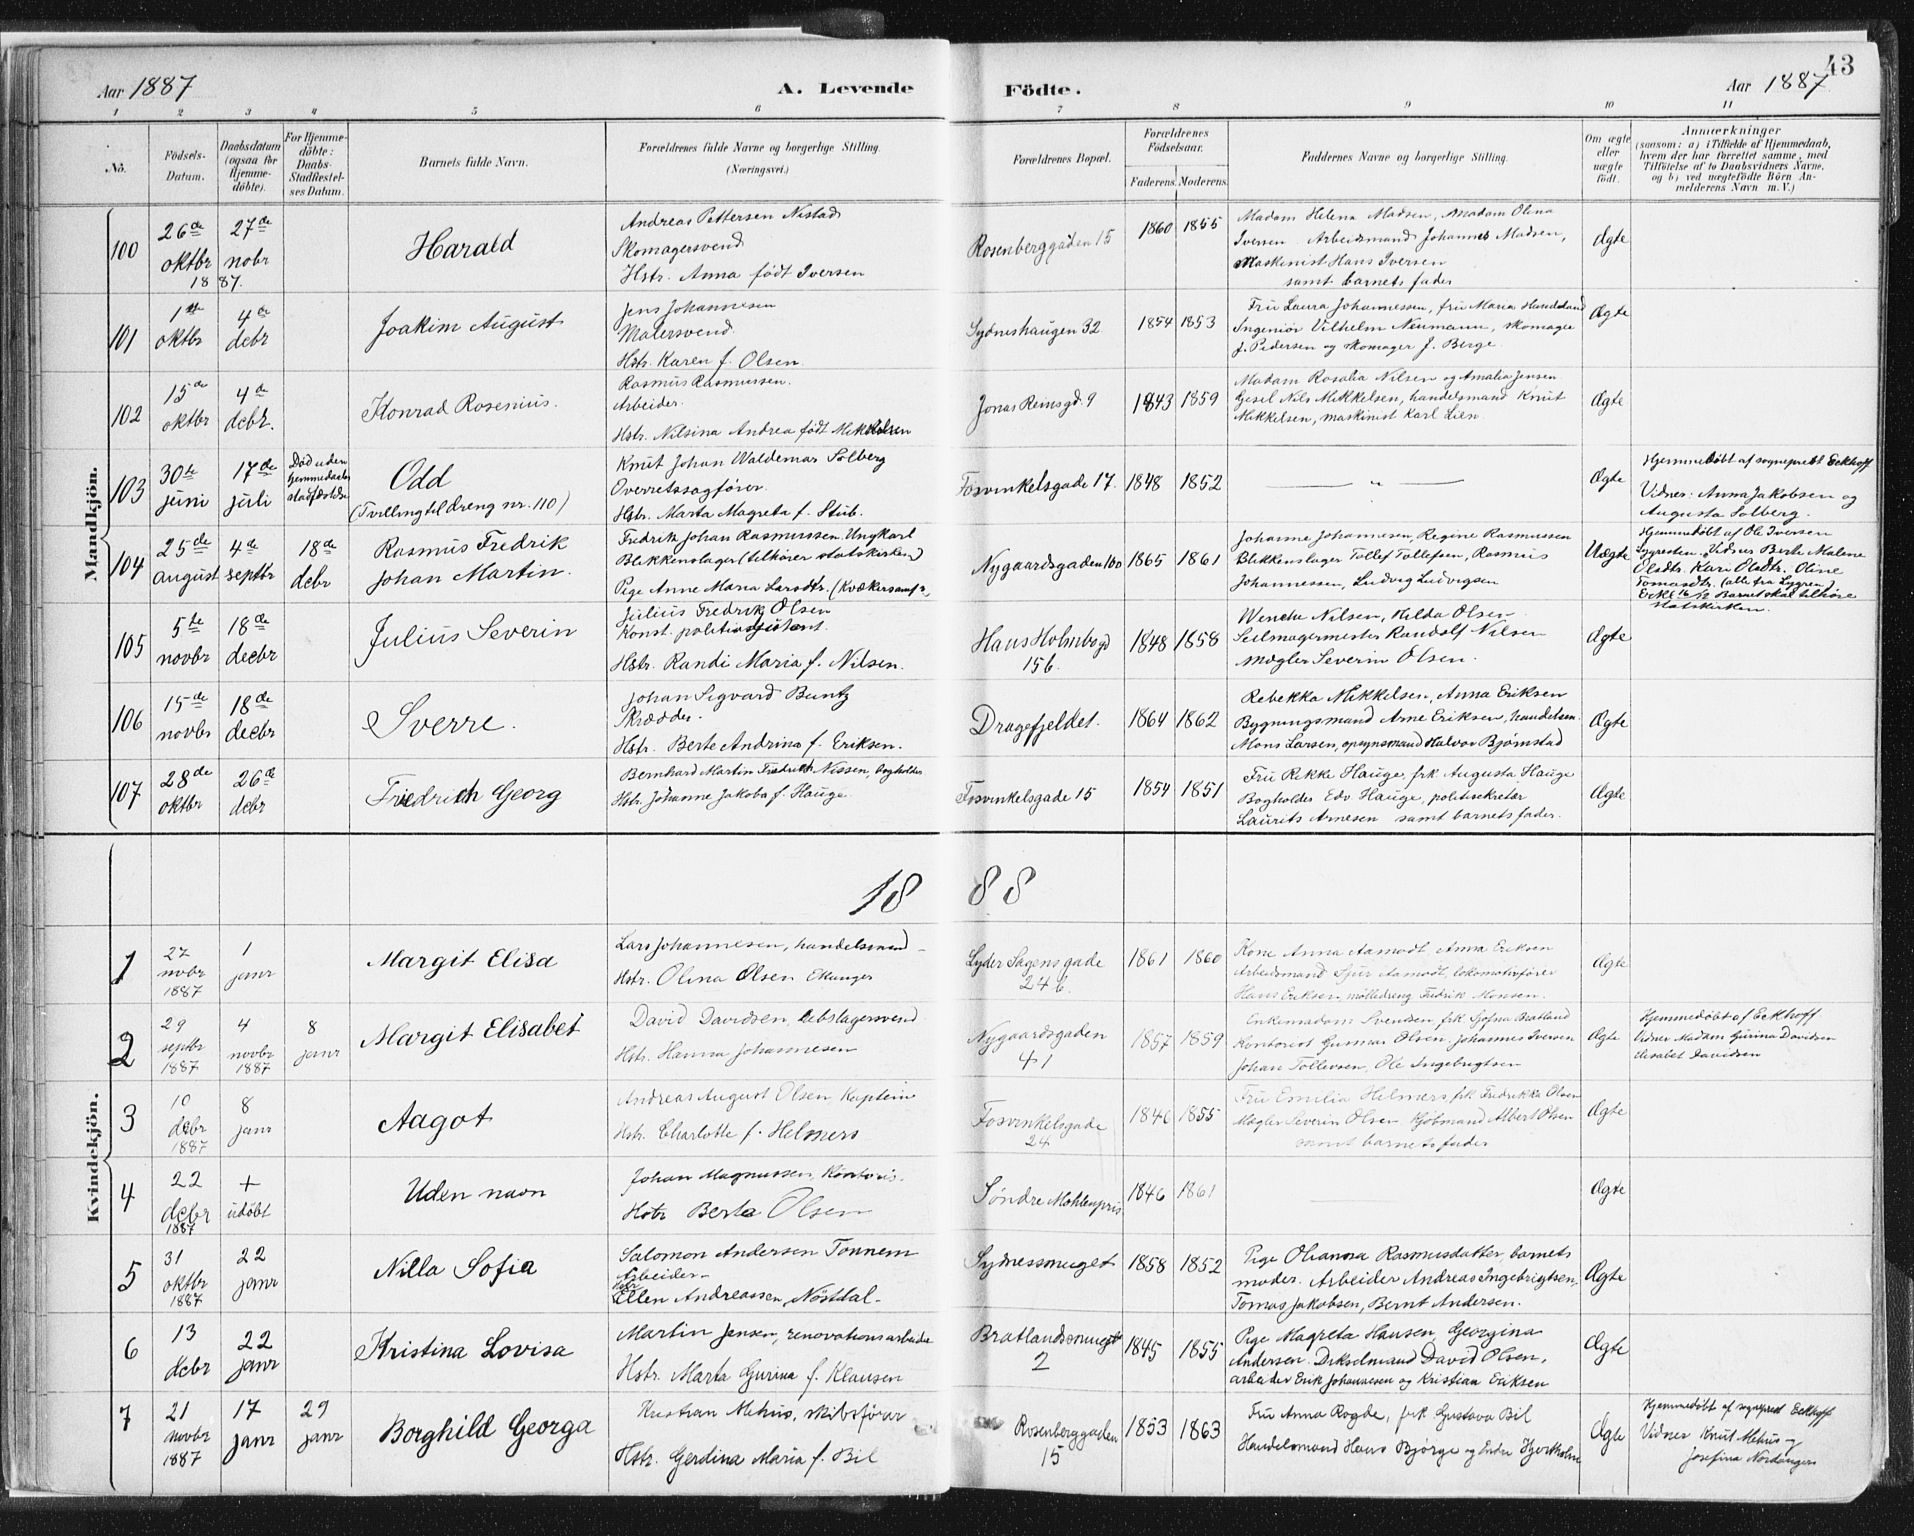 Aar 1887 A. Levende Födte. Aar 1887. 43
1 2 3 4 5 6 7 8 9 10 11
No. Födsels-Datum. Daabsdatum (ogsaa for Hjemme-döbte). For Hjemme-döbte: Daabs-Stadfæstelses Datum. Barnets fulde Navn. Forældrenes fulde Navne og borgerlige Stilling. (Næringsvei.) Forældrenes Bopæl. Forældrenes Födselsaar. Faderens. Moderens. Faddernes Navne og borgerlige Stilling. Om ægte eller uægte födt. Anmærkninger (saasom: a) i Tilfælde af Hjemmedaab, hvem der har forrettet samme, med Tilföielse af to Daabsvidners Navne, og b) ved uægtefödte Börn Anmelderens Navn m. V.)
Mandkjön.
100 26de oktbr 27de nobr 1887. Harald
Andreas Pettersen Nistad
Skomagersvend
Hstr. Anna født Iversen
Rosenberggaden 15 1860 1855
Madam Helena Madsen, Madam Olina
Iversen Arbeidsmand Johannes Madsen,
Maskinist Hans Iversen
samt barnets fader
Ægte
101 1ste oktbr 4de debr Joakim August
Jens Johannesen
Malersvend
Hstr. Karen f. Olsen.
Sydneshaugen 32 1854 1853
Fru Laura Johannessen, fru Maria
Ingeniør Vilhelm Neumann, skomager
J. Pedersen og skomager J. Berge.
Ægte
102 15de oktbr 4de debr. Konrad Rosenius.
Rasmus Rasmussen.
Arbeider.
Hstr. Nilsina Andrea født Mikkelsen
Jonas Reinsgd. 9 1843 1859
Madam Rosalia Nilsen og Amalia Jensen
Gesel Nils Mikkelsen, handelsmand Knut
Mikkelsen, maskinist Karl Lien.
Ægte
103 30te juni 17de juli Død uden hjemmedaabs stadfæstelse
Odd
(Tvilling til dreng nr. 110)
Knut Johan Waldemar Solberg
Overretssagfører.
Hstr. Marta Magreta f. Stub.
Fosvinkelsgade 17. 1848 1852 — " — Ægte
Hjemmedøbt af sogneprest Eckhoff
Vidner: Anna Jakobsen og
Augusta Solberg.
104 25de august 4de septbr 18de debr
Rasmus Fredrik
Johan Martin.
Fredrik Johan Rasmussen. Ungkarl
Blikkenslager (tilhører statskirken)
Pige Anne Maria Larsdtr. (Kvækersamf.)
Nygaardsgaden 160 1865 1861
Johanne Johannesen, Regine Rasmussen
Blikkenslager Tollef Tollefsen, Rasmus
Johannessen, Ludvig Ludvigsen
Uægte
Hjemmedøbt af Ole Iversen
Lygresten. Vidner Berte Malene
Olsdtr. Kari Olsdtr. Oline
Tomasdtr. (alle fra Lygren)
Barnet skal tilhøre
statskirken.
105 5te novbr 18de decbr Julius Severin
Julius Fredrik Olsen
Konst. politiassistent.
Hstr. Randi Maria f. Nilsen.
Hans Holmbogd 15b. 1848 1858
Wencke Nilsen, Hilda Olsen
Seilmagermester Randolf Nilsen
Mægler Severin Olsen.
Ægte
106 15de novbr 18de decbr Sverre.
Johan Sigvard Buntz
Skrædder.
Hstr. Berte Andrina f. Eriksen.
Dragefjeldet. 1864 1862
Rebekka Mikkelsen, Anna Eriksen
Bygningsmand Arne Eriksen, handelsm.
Mons Larsen, opsynsmand Halvor Bjørnstad
Ægte
107 28de oktbr 26de debr Friedrich Georg
Bernhard Martin Fredrik Nissen, bogholder
Hstr. Johanne Jakoba f. Hauge.
Fosvinkelsgade 15 1854 1851
Fru Rikke Hauge, frk Augusta Hauge
Bogholder Edv Hauge, politisekretær
Laurits Arnesen samt barnets fader.
Ægte
1888
Kvindekjön.
1 27 novbr 1887 1 janr Margit Elisa
Lars Johannesen, handelsmand
Hstr. Olina Olsen Ekanger
Lyder Sagens gade 24 b. 1861 1860
Kone Anna Aamodt, Anna Eriksen
Arbeidsmand Sjur Aamodt, lokomotivfører
Hans Eriksen, mølledreng Fredrik Monsen.
Ægte
2 29 septbr 1887 4 novbr 1887 8 janr Margit Elisabet
David Davidsen, Rebslagersvend
Hstr. Hanna Johannesen
Nygaardsgaden 41 1857 1859
Enkemadam Svendsen, frk Sofna Bratland
Kontorist Gunnar Olsen, Johannes Iversen
Johan Tollevsen, Ole Ingebrigtsen
Ægte
Hjemmedøbt af Eckhoff
Vidner Madam Gurina Davidsen
Elisabet Davidsen
3 10 debr 1887 8 janr Aagot
Andreas August Olsen, Kaptein
Hstr. Charlotte f. Helmers
Fosvinkelsgade 24 1846 1855
Fru Emilia Helmers, frk Fredrikka Olsen
Mægler Severin Olsen Kjøbmand Albert Olsen
samt barnets fader
Ægte
4 22 debr 1887 + udøbt Uden navn
Johan Magnussen, Kontoris.
Hstr Berta Olsen
Søndre Møhlenpris 1846 1861 Ægte
5 31 oktbr 1887 22 janr Nilla Sofia
Salomon Andersen Tonnem
Arbeider
Hstr Ellen Andreassen, Nöstdal.
Sydnessmuget 1858 1852
Pige Olianna Rasmusdatter, barnets
moder. Arbeider Andreas Ingebrigtsen
Tomas Jakobsen, Bernt Andersen.
Ægte
6 13 debr 22 janr Kristina Lovisa
Martin Jensen, renovationsarbeider
Hstr. Marta Gurina f. Klausen
Bratlandssmuget 2 1845 1855
Pige Magreta Hansen, Georgina
Andersen. Dikselmand David Olsen,
arbeider Erik Johannesen og Kristian Eriksen
Ægte
7 21 novbr 1887 17 janr 29 janr Borghild Georga
Kristian Mehus, skibsfører
Hstr. Gerdina Maria f. Bil
Rosenberggaden 15 1853 1863
Fru Anna Rogde, frk Gustava Bil
Handelsmand Hans Bjørge og Endre Hjortholm
Ægte
Hjemmedøbt af sogneprest Eckhoff
Vidner Knut Mehus og
Josefina Nordanger